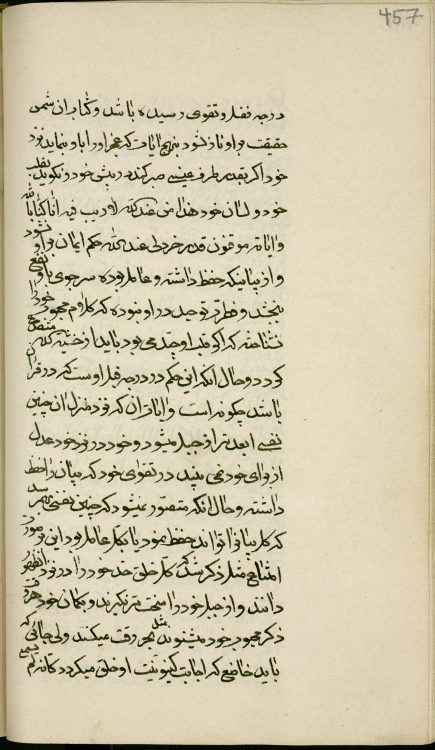 457
درجه فضل و تقوی رسیده باشد و کتاب ان شمس
حقیقت بر او نازل شود بنهج ایات که عجز او را باو بنماید نزد
خود اگر بقدر طرف عینی صبر کند در پیش خود و نگوید بقلب
خود و لسان خود هذا من عند الله لا ریب فیه انا کنا بالله
و ایاته موقنون قدر خردلی عند الله حکم ایمان بر او نشود
و از بیانیکه حفظ داشته و عالم بوده سر جوی باو نفع
نبخشد و قطره توحید در او نبوده که کلام محبوب خود را
نشناخته که اگر
گردد و حال انکه این حکم در درجه قبل اوست که در قران
باشد چگونه است و اثار ان که نزد منزل ان چنین
نفسی ابعد تر از جبل میشود و خود در نزد خود عدل
از برای خود نمی بیند در تقوای خود که بیان را حفظ
داشته و حال انکه متصور نمیشود که چنین نفسی بهم رسد
که کل بیان را تواند حفظ نمود یا بکل عامل بود این
امتناع مثل ذکر شد که کل خلق حد خود را در نزد ان ظهور
دانند و از جبل خود را سخت تر نگیرند و بکمان خود هر وقت
ذکر محبوب خود میشنوند مثل بحر رقت میکنند ولی جائی که
باید خاضع که اجابت کینونیت او خلق میگردد کانه لم یسمع